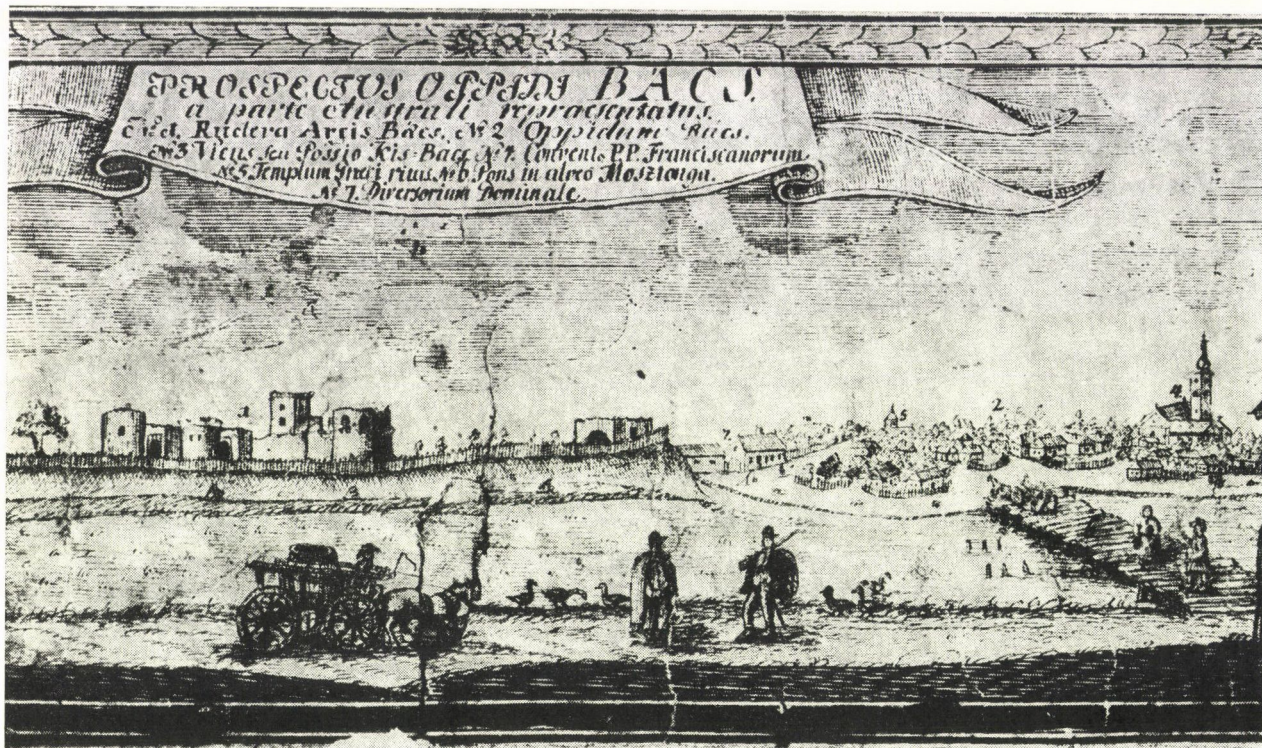 PROSPECTUS OPPIDI BACS.
a parte repraesentatus.
Rudera Arcis Bács. №2 Oppidum Bács.
№3 Vicus seu Possio Kis-Bács №4. Convent P.P. Franciscanorum
№5. Templum Graeci ritus. №6. Pons in alveo Mosztonga.
№7. Diversorium Dominale.
1
7.
5
2
4